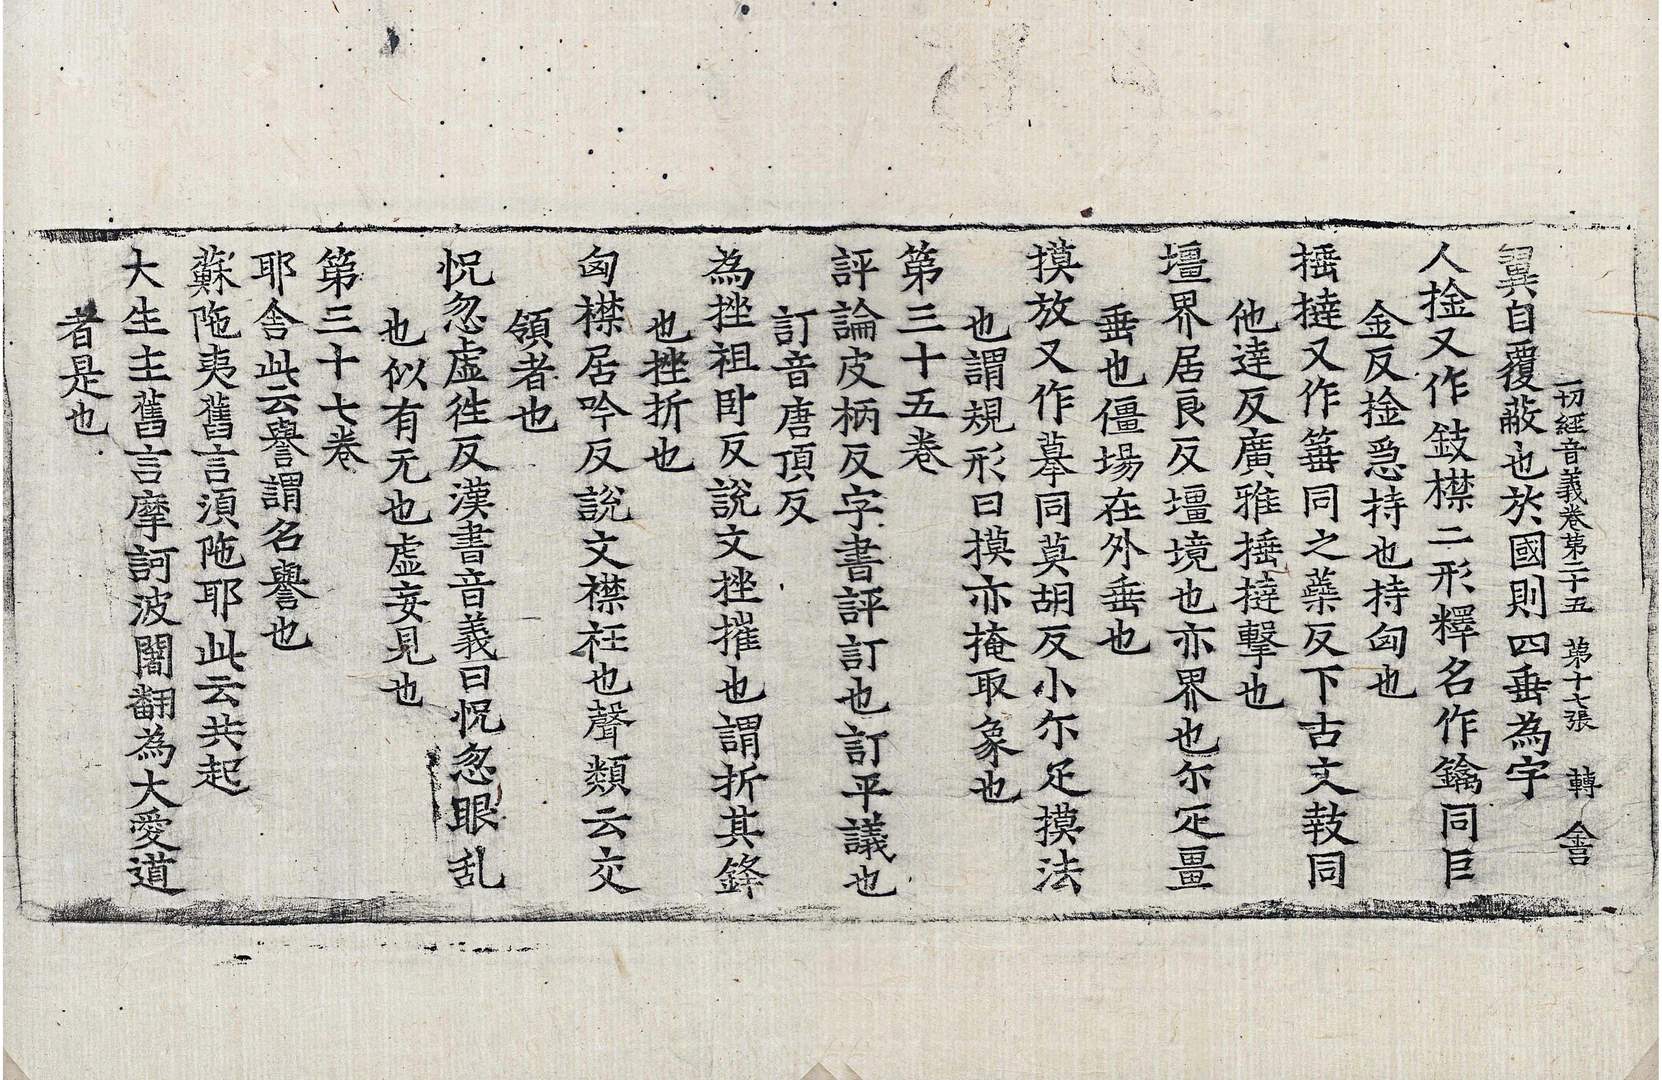 一切經音義卷第二十五　第十七張　轉　會
翼自覆蔽也於國則四垂為宇
人捦又作鈙檎二形釋名作鑰同巨
金反捦急持也持匈也
捶撻又作箠同之蘂反下古文㪅同
他達反廣雅捶撻擊也
壃界居良反壃境也亦界也尓疋畺
垂也僵場在外垂也
摸放又作摹同莫胡反小尓疋摸法
也謂規形曰摸亦掩取象也
第三十五卷
評論皮柄反字書評訂也訂平議也
訂音唐頂反
為挫祖卧反說文挫摧也謂折其鋒
也挫折也
匈襟居吟反說文襟衽也聲類云交
領者也
怳忽虛徃反漢書音義曰怳忽眼乱
也似有无也虛妄見也
第三十七卷
耶舍此云譽謂名譽也
蘇陁夷舊言湏陁耶此云共起
大生主舊言摩訶波闍翻為大愛道
者是也